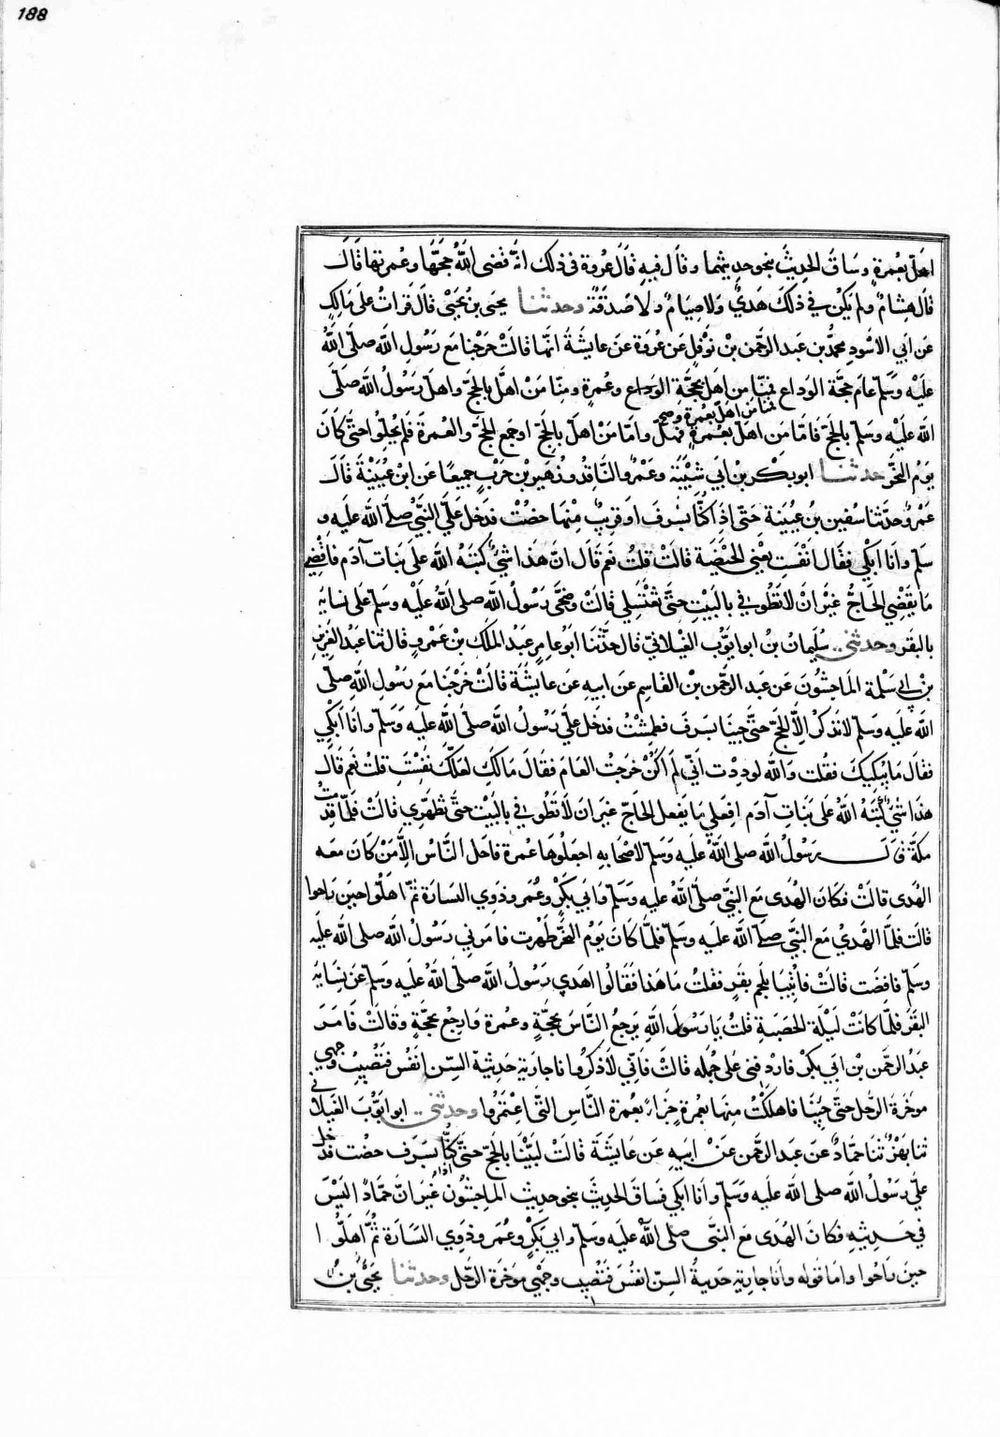 188
اهل بعمرة وساق الحديث بنحو حديثهما وقال فيه قال عروة في ذلك انه قضى الله حجها وعمرتها قال
قال هشام ولم يكن في ذلك هدي ولا صيام ولا صدقة وحدثنا يحيى بن يحيى قال قرات على مالك
عن ابي الاسود محمد بن عبد الرحمن بن نوفل عن عروة عن عايشة انها قالت خرجنا مع رسول الله صلى الله
عليه وسلم عام حجة الوداع فمنا من اهل بحجة الوداع وعمرة ومنا من اهل بالحج واهل رسول الله صلى
منا من اهل بعمرة وصح
الله عليه وسلم بالحج فاما من اهل بعمرة فحل واما من اهل بالحج او جمع الحج والعمرة فلم يحلوا حتى كان
يوم النحر حدثنا ابو بكر بن ابي شيبة وعمرو الناقد وزهير بن حرب جميعا عن ابن عيينة قال
عمرو حدثنا سفين بن عيينة حتى اذا كنا بسرف او قريب منها حضت فدخل علي النبي صلى الله عليه و
سلم وانا ابكي فقال انفست يعني الحيضة قالت قلت نعم قال ان هذا شي كتبه الله على بنات آدم فاقضي
ما يقضي الحاج غير ان لا تطوفي بالبيت حتى تغتسلي قالت وضحى رسول الله صلى الله عليه وسلم على نسايه
بالبقر وحدثني سليمان بن ابو ايوب الغيلاني قال حدثنا ابو عامر عبد الملك بن عمرو قال ثنا عبد العزيز
بن ابي سلمة الماجشون عن عبد الرحمن بن القاسم عن ابيه عن عايشة قالت خرجنا مع رسول الله صلى
الله عليه وسلم لا نذكر الا الحج حتى جينا بسرف فطمثت فدخل علي رسول الله صلى الله عليه وسلم وانا ابكي
فقال ما يبكيك فقلت والله لوددت اني لم اكن خرجت العام فقال مالك لعلك نفست قلت نعم قال
هذا شي كتبه الله على بنات آدم افعلي ما يفعل الحاج غير ان لا تطوفي بالبيت حتى تطهري قالت فلما قدمت
مكة قال رسول الله صلى الله عليه وسلم لاصحابه اجعلوها عمرة فاحل الناس الا من كان معه
الهدى قالت فكان الهدى مع النبي صلى الله عليه وسلم وابي بكر وعمر وذوي اليسارة ثم اهلوا حين راحوا
قالت فلما الهدي مع النبي صلى الله عليه وسلم فلما كان يوم النحر طهرت فامرني رسول الله صلى الله عليه
وسلم فافضت قالت فاتينا بلحم بقر فقلت ما هذا فقالوا اهدي رسول الله صلى الله عليه وسلم عن نسايه
البقر فلما كانت ليلة الحصبة قلت يا رسول الله يرجع الناس بحجة وعمرة وارجع بحجة وقالت فامر
عبد الرحمن بن ابي بكر فاردفني على جمله قالت فاني لاذكر وانا جارية حديثة السن انفس فتصيب وجهي
موخرة الرحل حتى جينا فاهلكت منها بعمرة جزاء بعمرة الناس التي اعتمروا وحدثني ابو ايوب الغيلاني
ثنا بهز ثنا حماد عن عبد الرحمن عن ابيه عن عايشة قالت لبينا بالحج حتى كنا بسرف حضت فدخل
علي رسول الله صلى الله عليه وسلم وانا ابكي فساق الحديث بنحو حديث الماجشون غير ان حماد اليس
في حديثه فكان الهدى مع النبي صلى الله عليه وسلم وابي بكر وعمر وذوي اليسارة ثم اهلوا
حين راحوا واما قوله وانا جارية حديثة السن انفس فتصيب وجهي موخرة الرحل وحدثنا يحيى بن